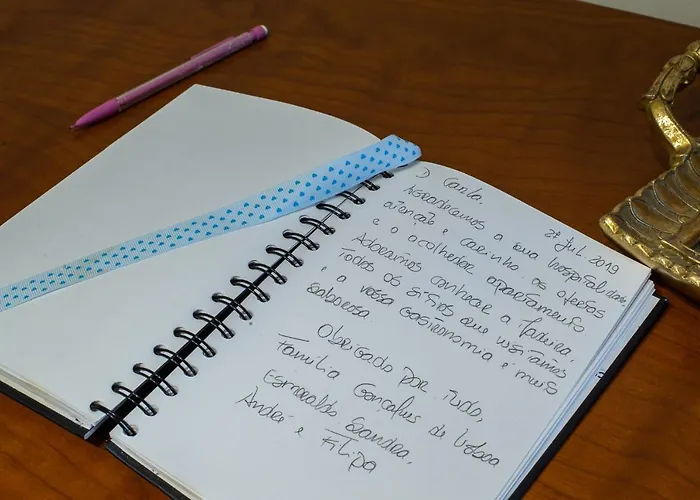 27 Jul. 2019
D. Carla,
Agradecemos a sua hospitalidade
atenção e carinho, as ofertas
e o acolhedor apartamento
Adoramos conhecer a Madeira,
todos os sítios que visitamos
e a vossa gastronomia é muito
saborosa
Obrigado por tudo,
Família Gonçalves de Lisboa
Esmeralda, Sandra,
André e Filipa